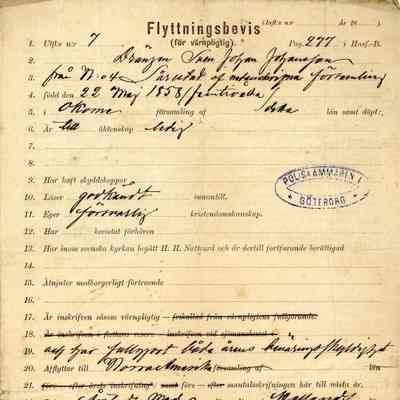 (Infl:s n:r Är 18 )
Flyttningsbevis
(för värnpligtig).
1. Utfl:s n:r 7 Pag. 277 i Husf.-B.
2. Drängen Sven Johan Johansson
3. från N:o 4 församling
4. född den 22 Maj 1858
5. i Okome församling af län samt döpt;
6. Är till äktenskap ledig
7.
8.
9. Har haft skyddskoppor
10. Läser godkändt innantill.
11. Eger försvarlig kristendomskunskap.
12. Har bevistat förhören
13. Har inom svenska kyrkan begått H. H. Nattvard och är dertill fortfarande berättigad
14.
15. Åtnjuter medborgerligt förtroende
16.
POLISKAMMAREN I
GÖTEBORG
17. Är inskrifven såsom värnpligtig — frikallad från värnpligtens fullgörande.
18.
19. och har fullgjort båda årens beväringsskyldighet
20. Afflyttar till Norra Amerika församling af län
21. före – efter årets inskrifning samt före – efter mantalsskrifningen här till nästa år.